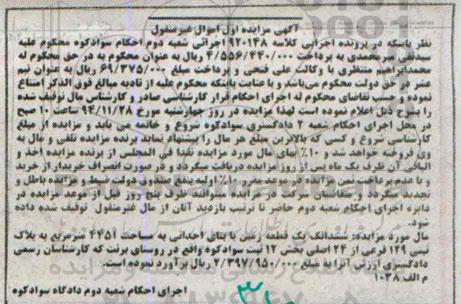 آگهی مزایده اول اموال غیرمنقول
نظر باینکه در پرونده اجرایی کلاسه ۹۲۰۱۳۸ اجرائی شعبه دوم احکام سوادکوه محکوم علیه
سیدتقی میرمحمدی به پرداخت ۴/۵۵۶/۴۴۰/۰۰۰ ریال به عنوان محکوم به در حق محکوم له
محمدابراهیم منتظری با وکالت علی فتحی و پرداخت مبلغ ۶۹/۳۷۵/۰۰۰ ریال به عنوان نیم
عشر در حق دولت محکوم می‌باشد و با عنایت باینکه محکوم علیه از تادیه مبالغ فوق الذکر امتناع
نموده و حسب تقاضای محکوم له اجرای احکام قرار کارشناسی صادر و کارشناس مال توقیف شده
را بشرح ذیل اعلام نموده است لهذا مزایده در روز چهارشنبه مورخ ۹۴/۱۱/۲۸ ساعت ۱۰ صبح
در محل اجرای احکام شعبه ۲ دادگستری سوادکوه شروع و خاتمه می یابد و مزایده از مبلغ
کارشناسی شروع و کسی که بالاترین مبلغ هر مال را پیشنهاد نماید برنده مزایده تلقی و مال به
وی فروخته خواهد شد و ۱۰٪ بهای مال مورد مزایده نقدا فی المجلس از برنده مزایده اخذ و
الباقی آن ظرف یک ماه پس از روز مزایده دریافت میگردد و در صورت انصراف خریدار از خرید
و یا عدم پرداخت بهای مال در موعد مقرر ۱۰٪ اولیه بنفع صندوق دولت ضبط و مزایده باطل و
تجدید میگردد و متقاضیان شرکت در مزایده میتوانند ظرف پنج روز قبل از موعد مزایده در
دایره اجرای احکام شعبه دوم حاضر تا ترتیب بازدید آنان از مال غیرمنقول توقیف شده داده
شود.
مال مورد مزایده: ششدانگ یک قطعه زمین با بنای احداثی به مساحت ۴۴۵۱ مترمربع به پلاک
ثبتی ۱۲۹ فرعی از ۲۴ اصلی بخش ۱۲ ثبت سوادکوه واقع در روستای برنت که کارشناسان رسمی
دادگستری ارزش آنرا به مبلغ ۲/۳۹۷/۹۵۰/۰۰۰ ریال برآورد نموده است.
م الف ۱۰۳۸
اجرای احکام شعبه دوم دادگاه سوادکوه